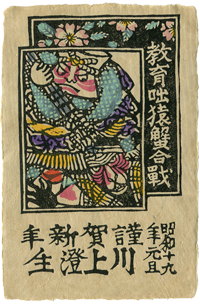 教育咄猿蟹合戰
昭和十九
年元旦
謹賀新年
川上澄生